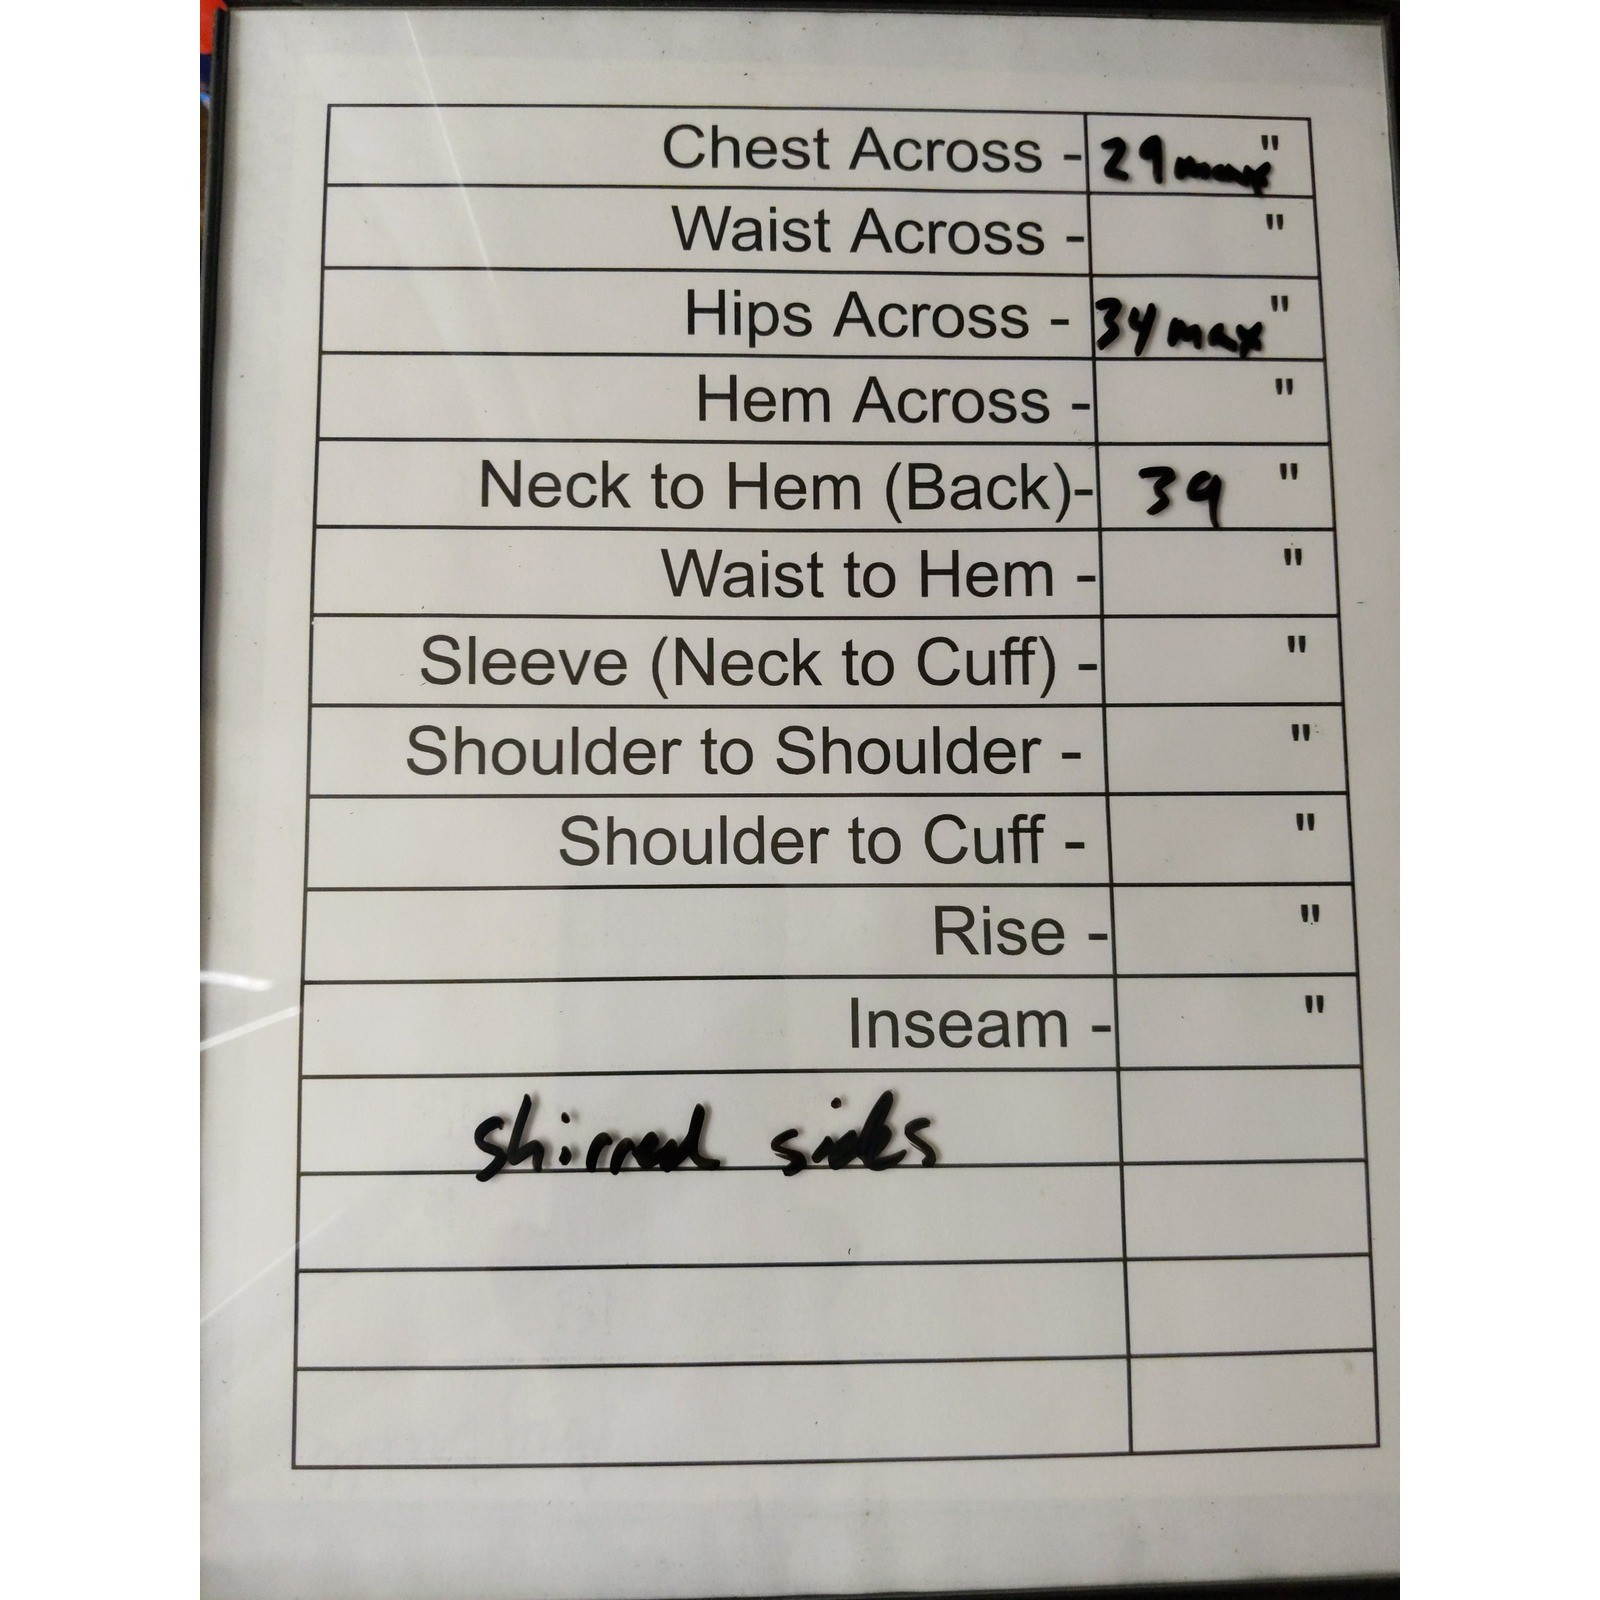 Chest Across - 29 max "
Waist Across - "
Hips Across - 34 max "
Hem Across - "
Neck to Hem (Back)- 39 "
Waist to Hem - "
Sleeve (Neck to Cuff) - "
Shoulder to Shoulder - "
Shoulder to Cuff - "
Rise - "
Inseam - "
shirred sides